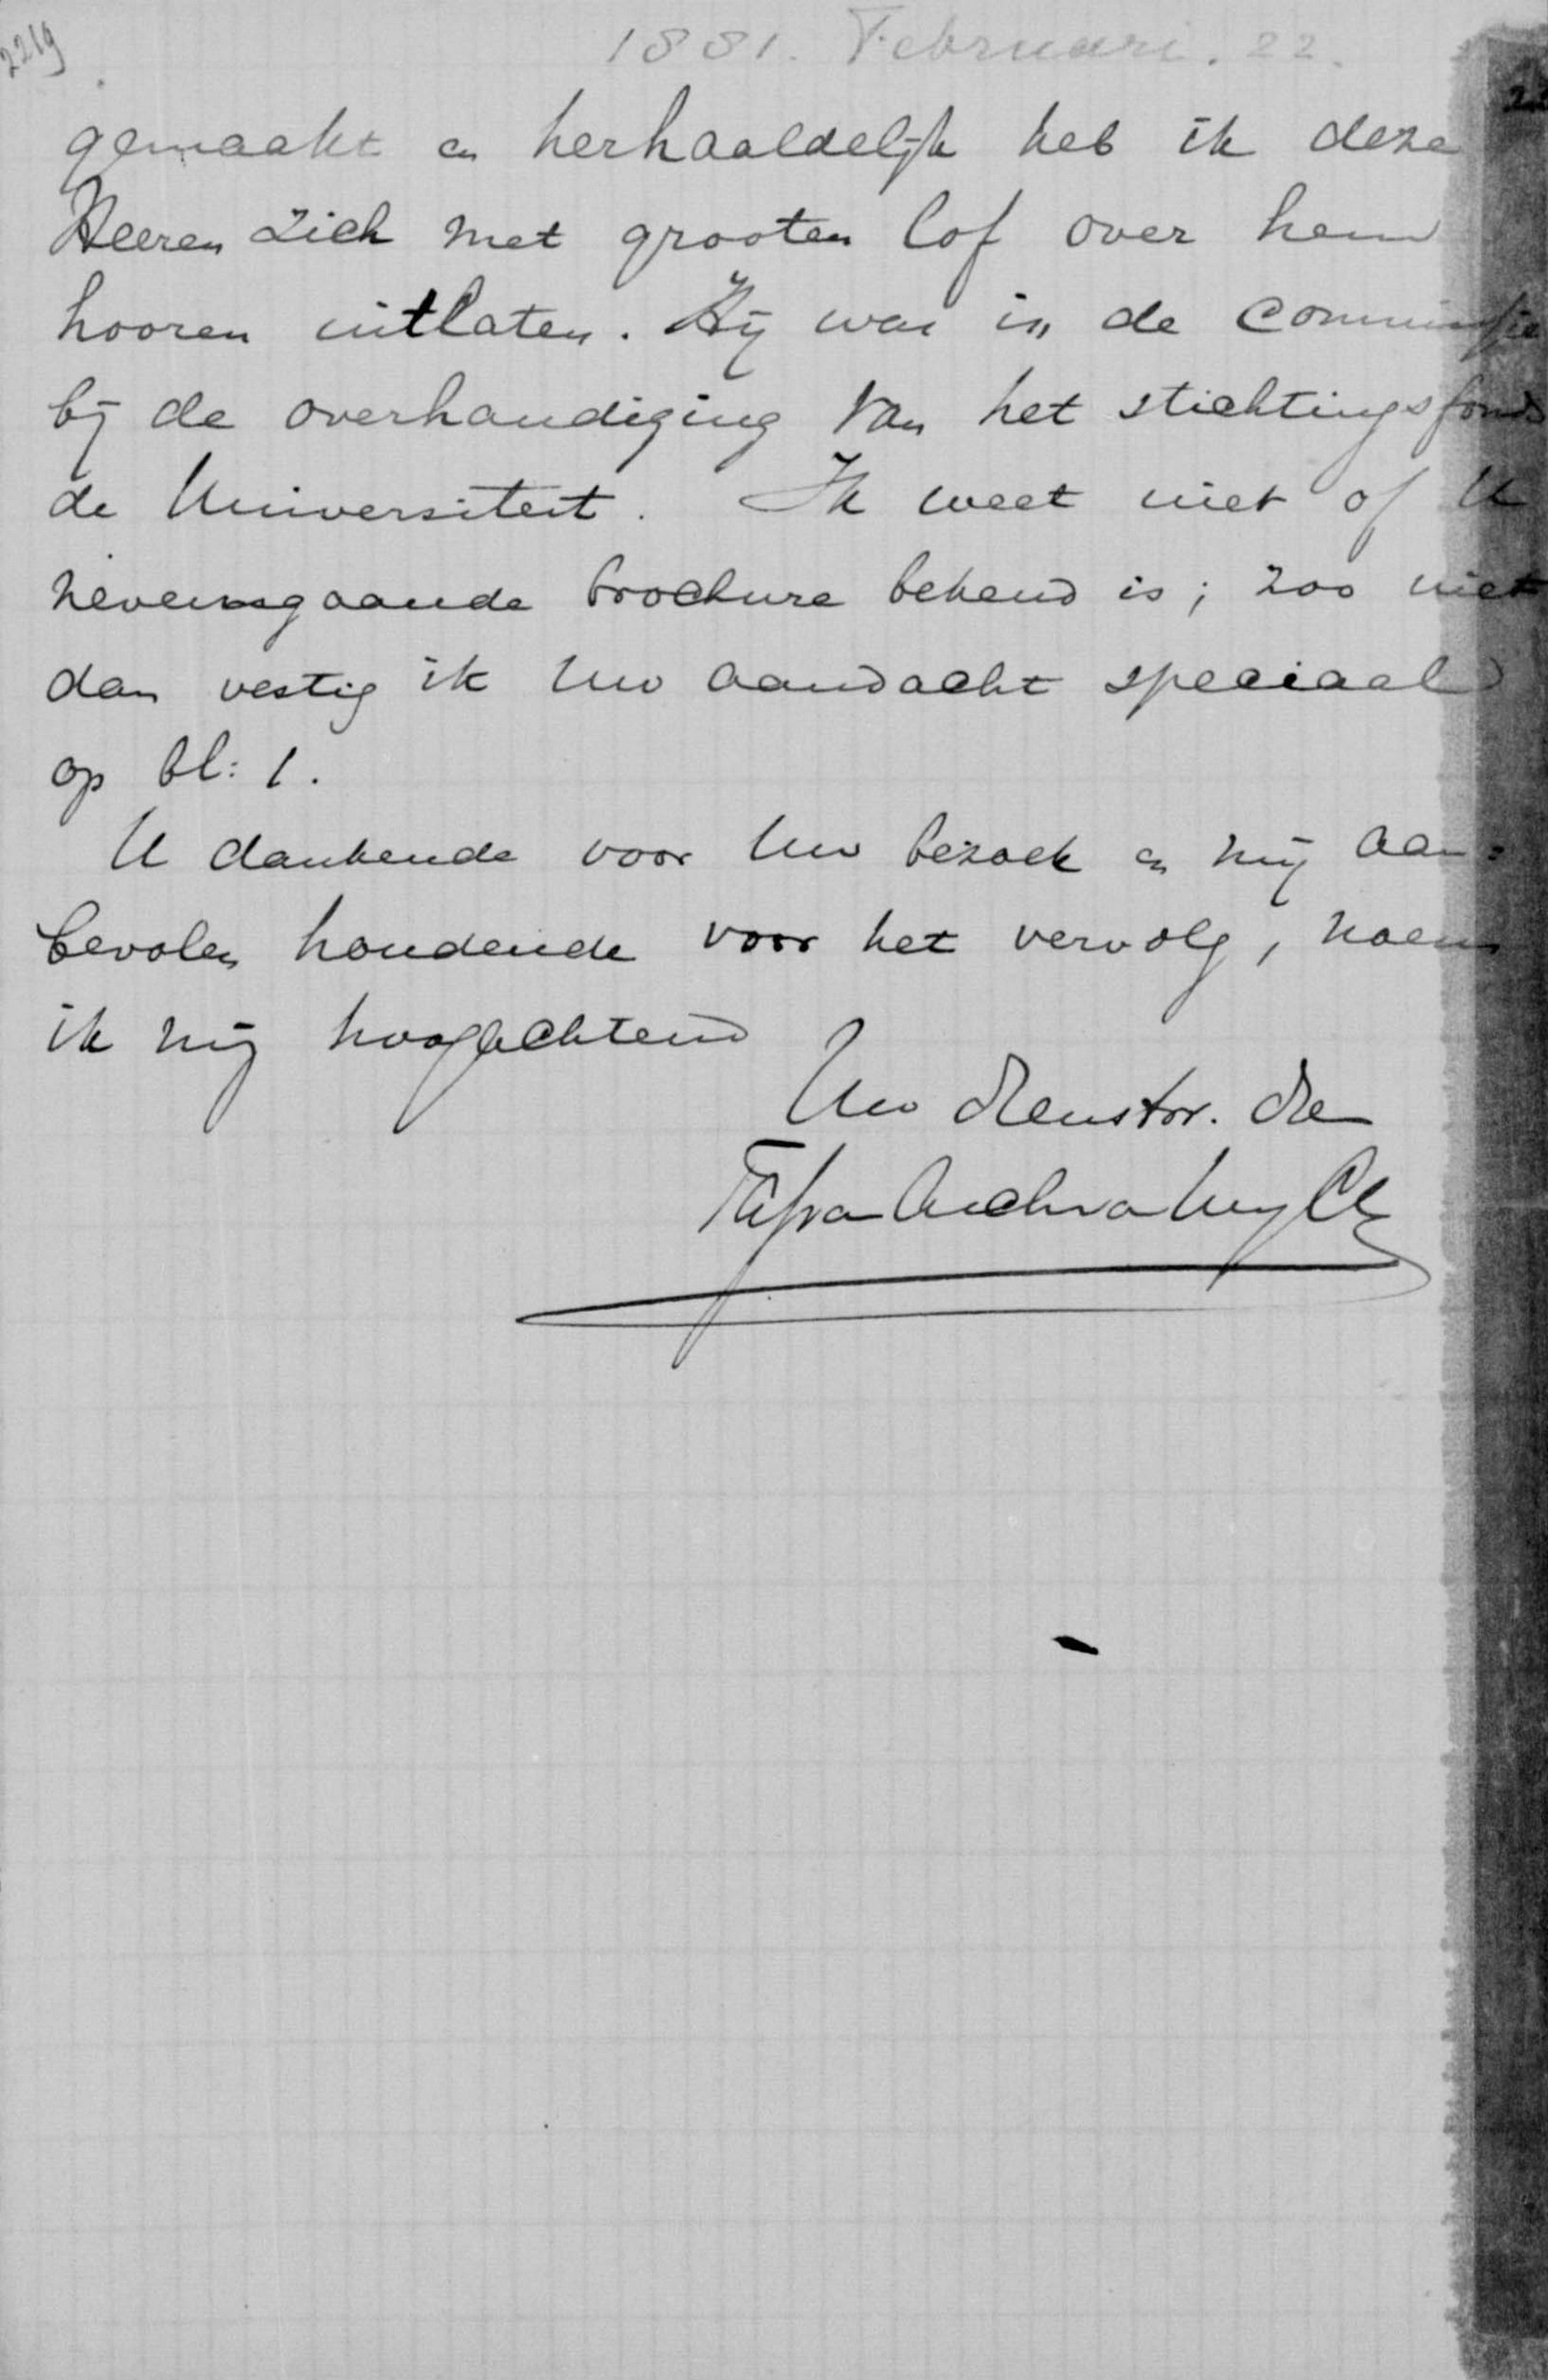 2219
1881. Februari. 22.
gemaakt en herhaaldelijk heb ik deze
Heeren zich met grooten lof over hem
hooren uitlaten. Hij was in de commissie
bij de overhandiging van het stichtingsfonds
de Universiteit. Ik weet niet of U
nevensgaande brochure bekend is; zoo niet
dan vestig ik Uw aandacht speciaal
op bl: 1.
U dankende voor Uw bezoek en mij aan=
bevolen houdende voor het vervolg, noem
ik mij hoogachtend
Uw dienstw. die